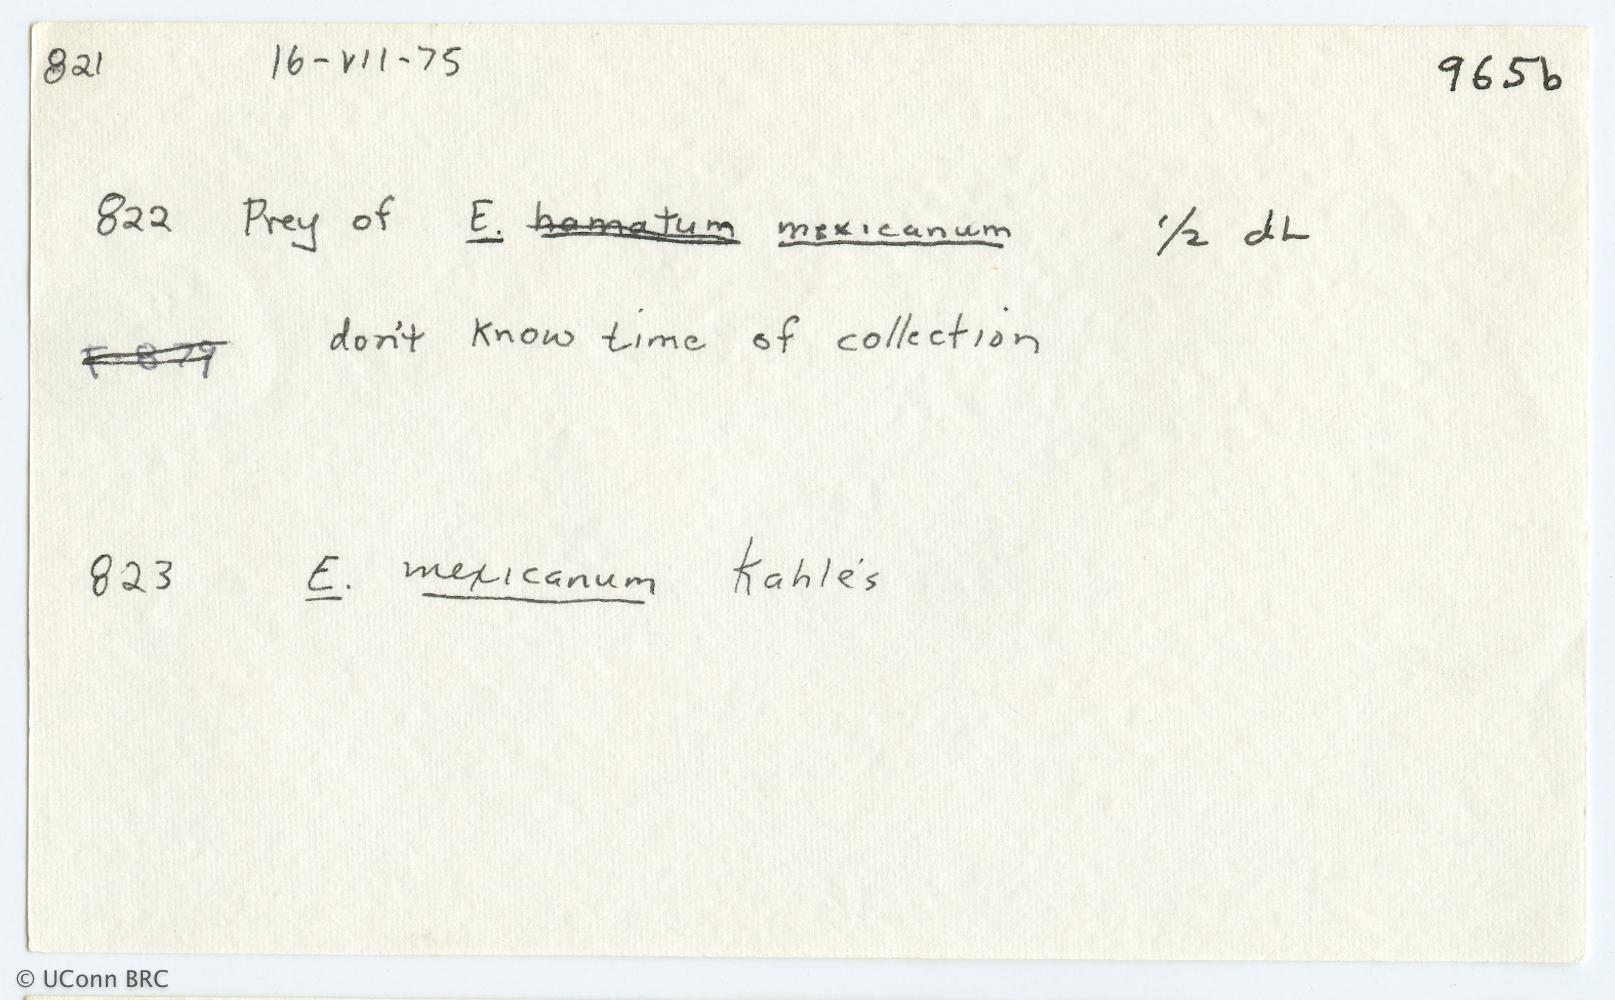 821 16-VII-75 965b
822 Prey of E. hamatum mexicanum 1/2 dL
F-B 79 don't know time of collection
823 E. mexicanum Kahle's
© UConn BRC